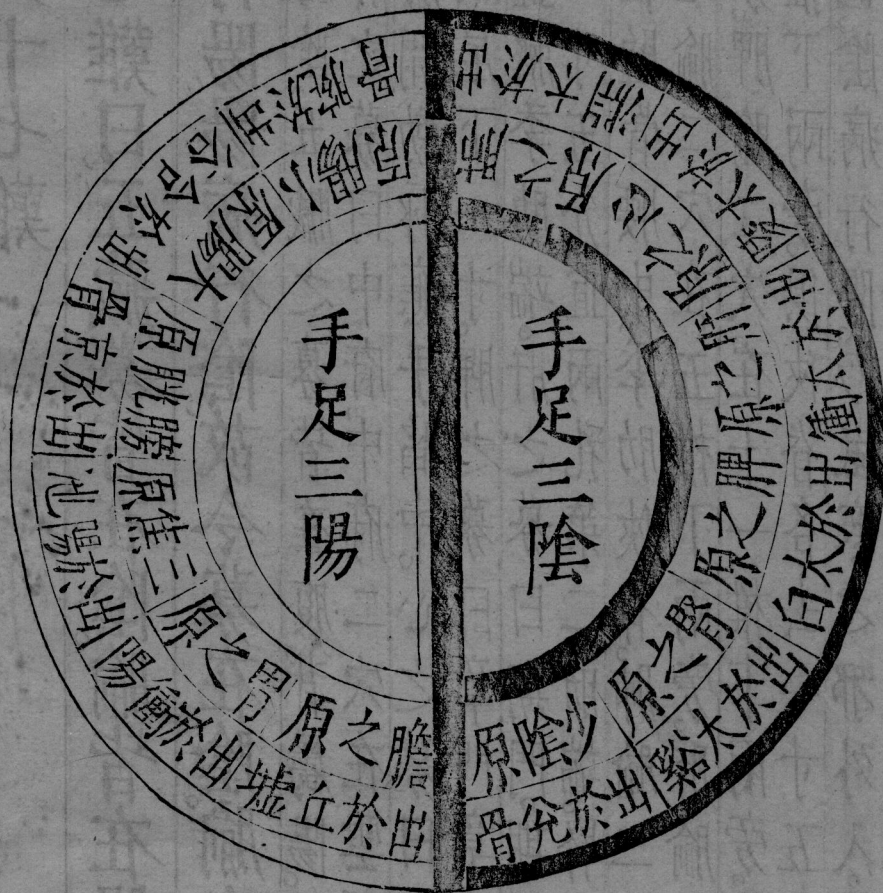 手足三陰
手足三陽
肺之原
出於太淵
心之原
出於太陵
肝之原
出於太衝
脾之原
出於太白
腎之原
出於太谿
少陰原
出於兌骨
膽之原
出於丘墟
胃之原
出於衝陽
三焦原
出於陽池
膀胱原
出於京骨
大腸原
出於合谷
小腸原
出於腕骨